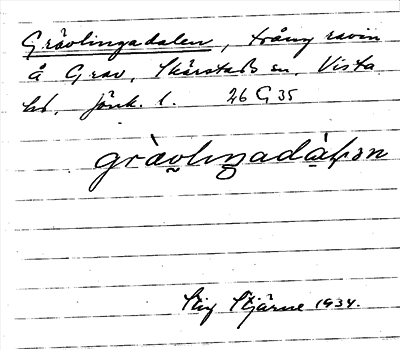 Grävlingadalen, trång ravin
å Grav, Skärstads sn, Vista
hd, Jönk. l. 26 G 35
grävliŋadàɫən
Stig Stjärne 1934.